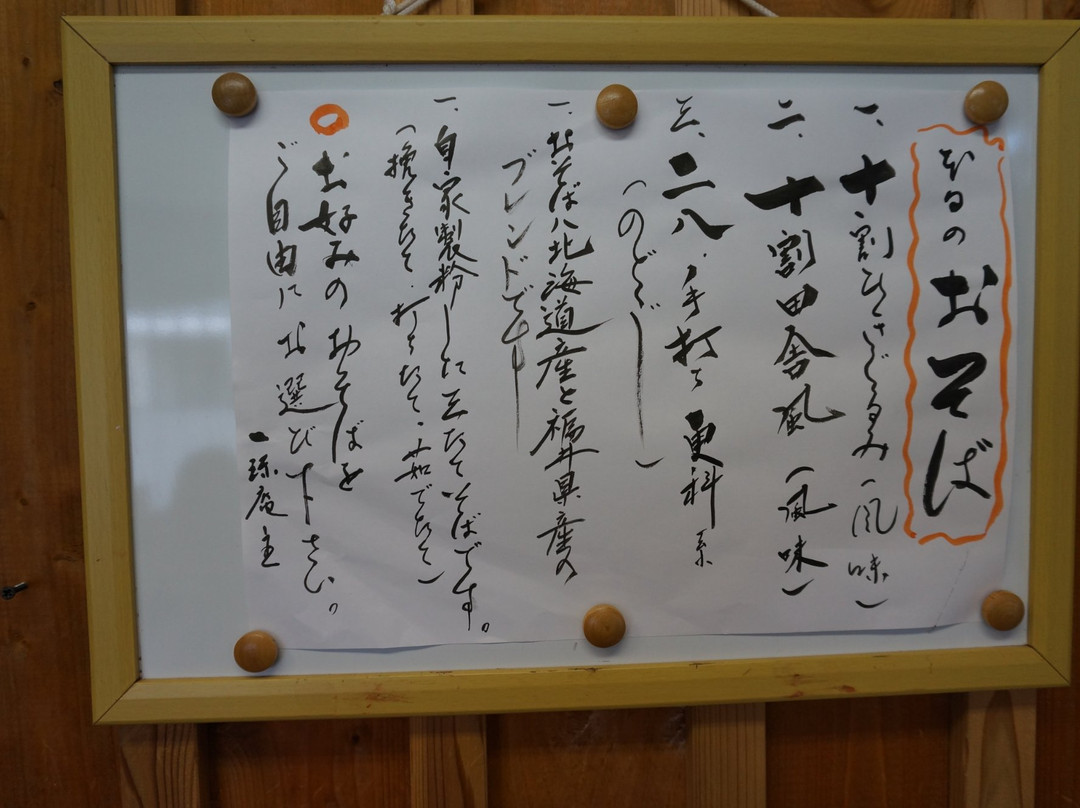 本日のおそば
一、十割ひきぐるみ(風味)
二、十割田舎風(風味)
三、二八、手打ち更科系
(のどごし)
一、おそばハ北海道産と福井県産の
ブレンドです
一、自家製粉した三たてそばです。
(挽きたて、打ちたて、茹でたて)
○お好みのおそばを
ご自由にお選び下さい。
庵主